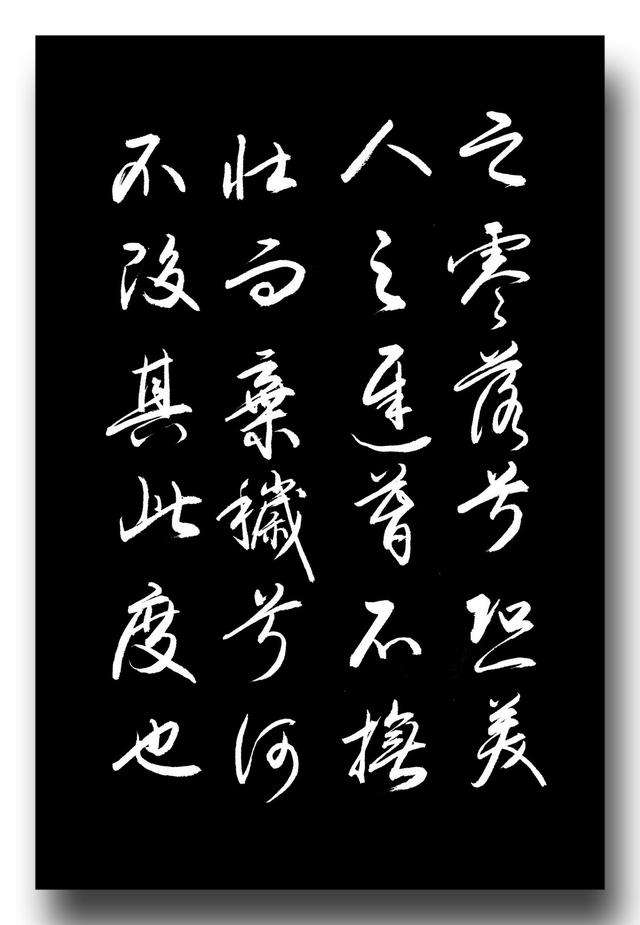 之零落兮恐美
人之遲暮不撫
壯而棄穢兮何
不改其此度也